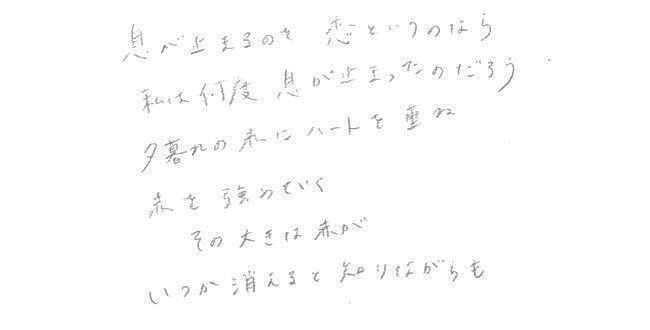 息が止まるのを 恋というのなら
私は何度 息が止まったのだろう
夕暮れの赤にハートを重ね
赤を強めていく
その大きな赤が
いつか消えると知りながらも